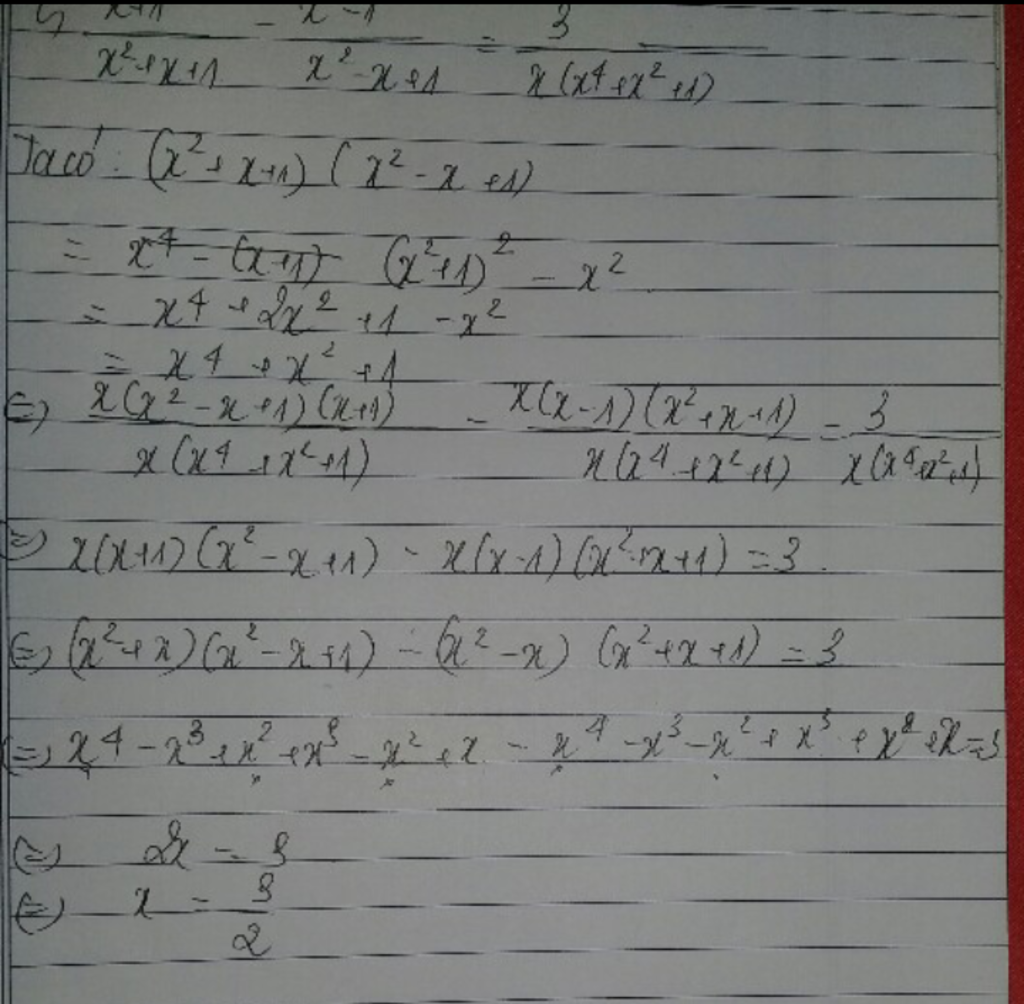 x+1/(x²+x+1) - x-1/(x²-x+1) = 3/(x(x⁴+x²+1))
Ta có: (x²+x+1)(x²-x+1)
= x⁴-(x+1) (x²+1)² - x²
= x⁴ + 2x² + 1 - x²
= x⁴ + x² + 1
⇔) x(x²-x+1)(x+1)/(x(x⁴+x²+1)) - x(x-1)(x²+x+1)/(x(x⁴+x²+1)) = 3/(x(x⁴+x²+1))
⇔) x(x+1)(x²-x+1) - x(x-1)(x²+x+1) = 3.
⇔) (x²+x)(x²-x+1) - (x²-x) (x²+x+1) = 3
⇔) x⁴ - x³ + x² + x³ - x² + x - x⁴ - x³ - x² + x³ + x² + x = 3
⇔) 2x = 3
⇔) x = 3/2